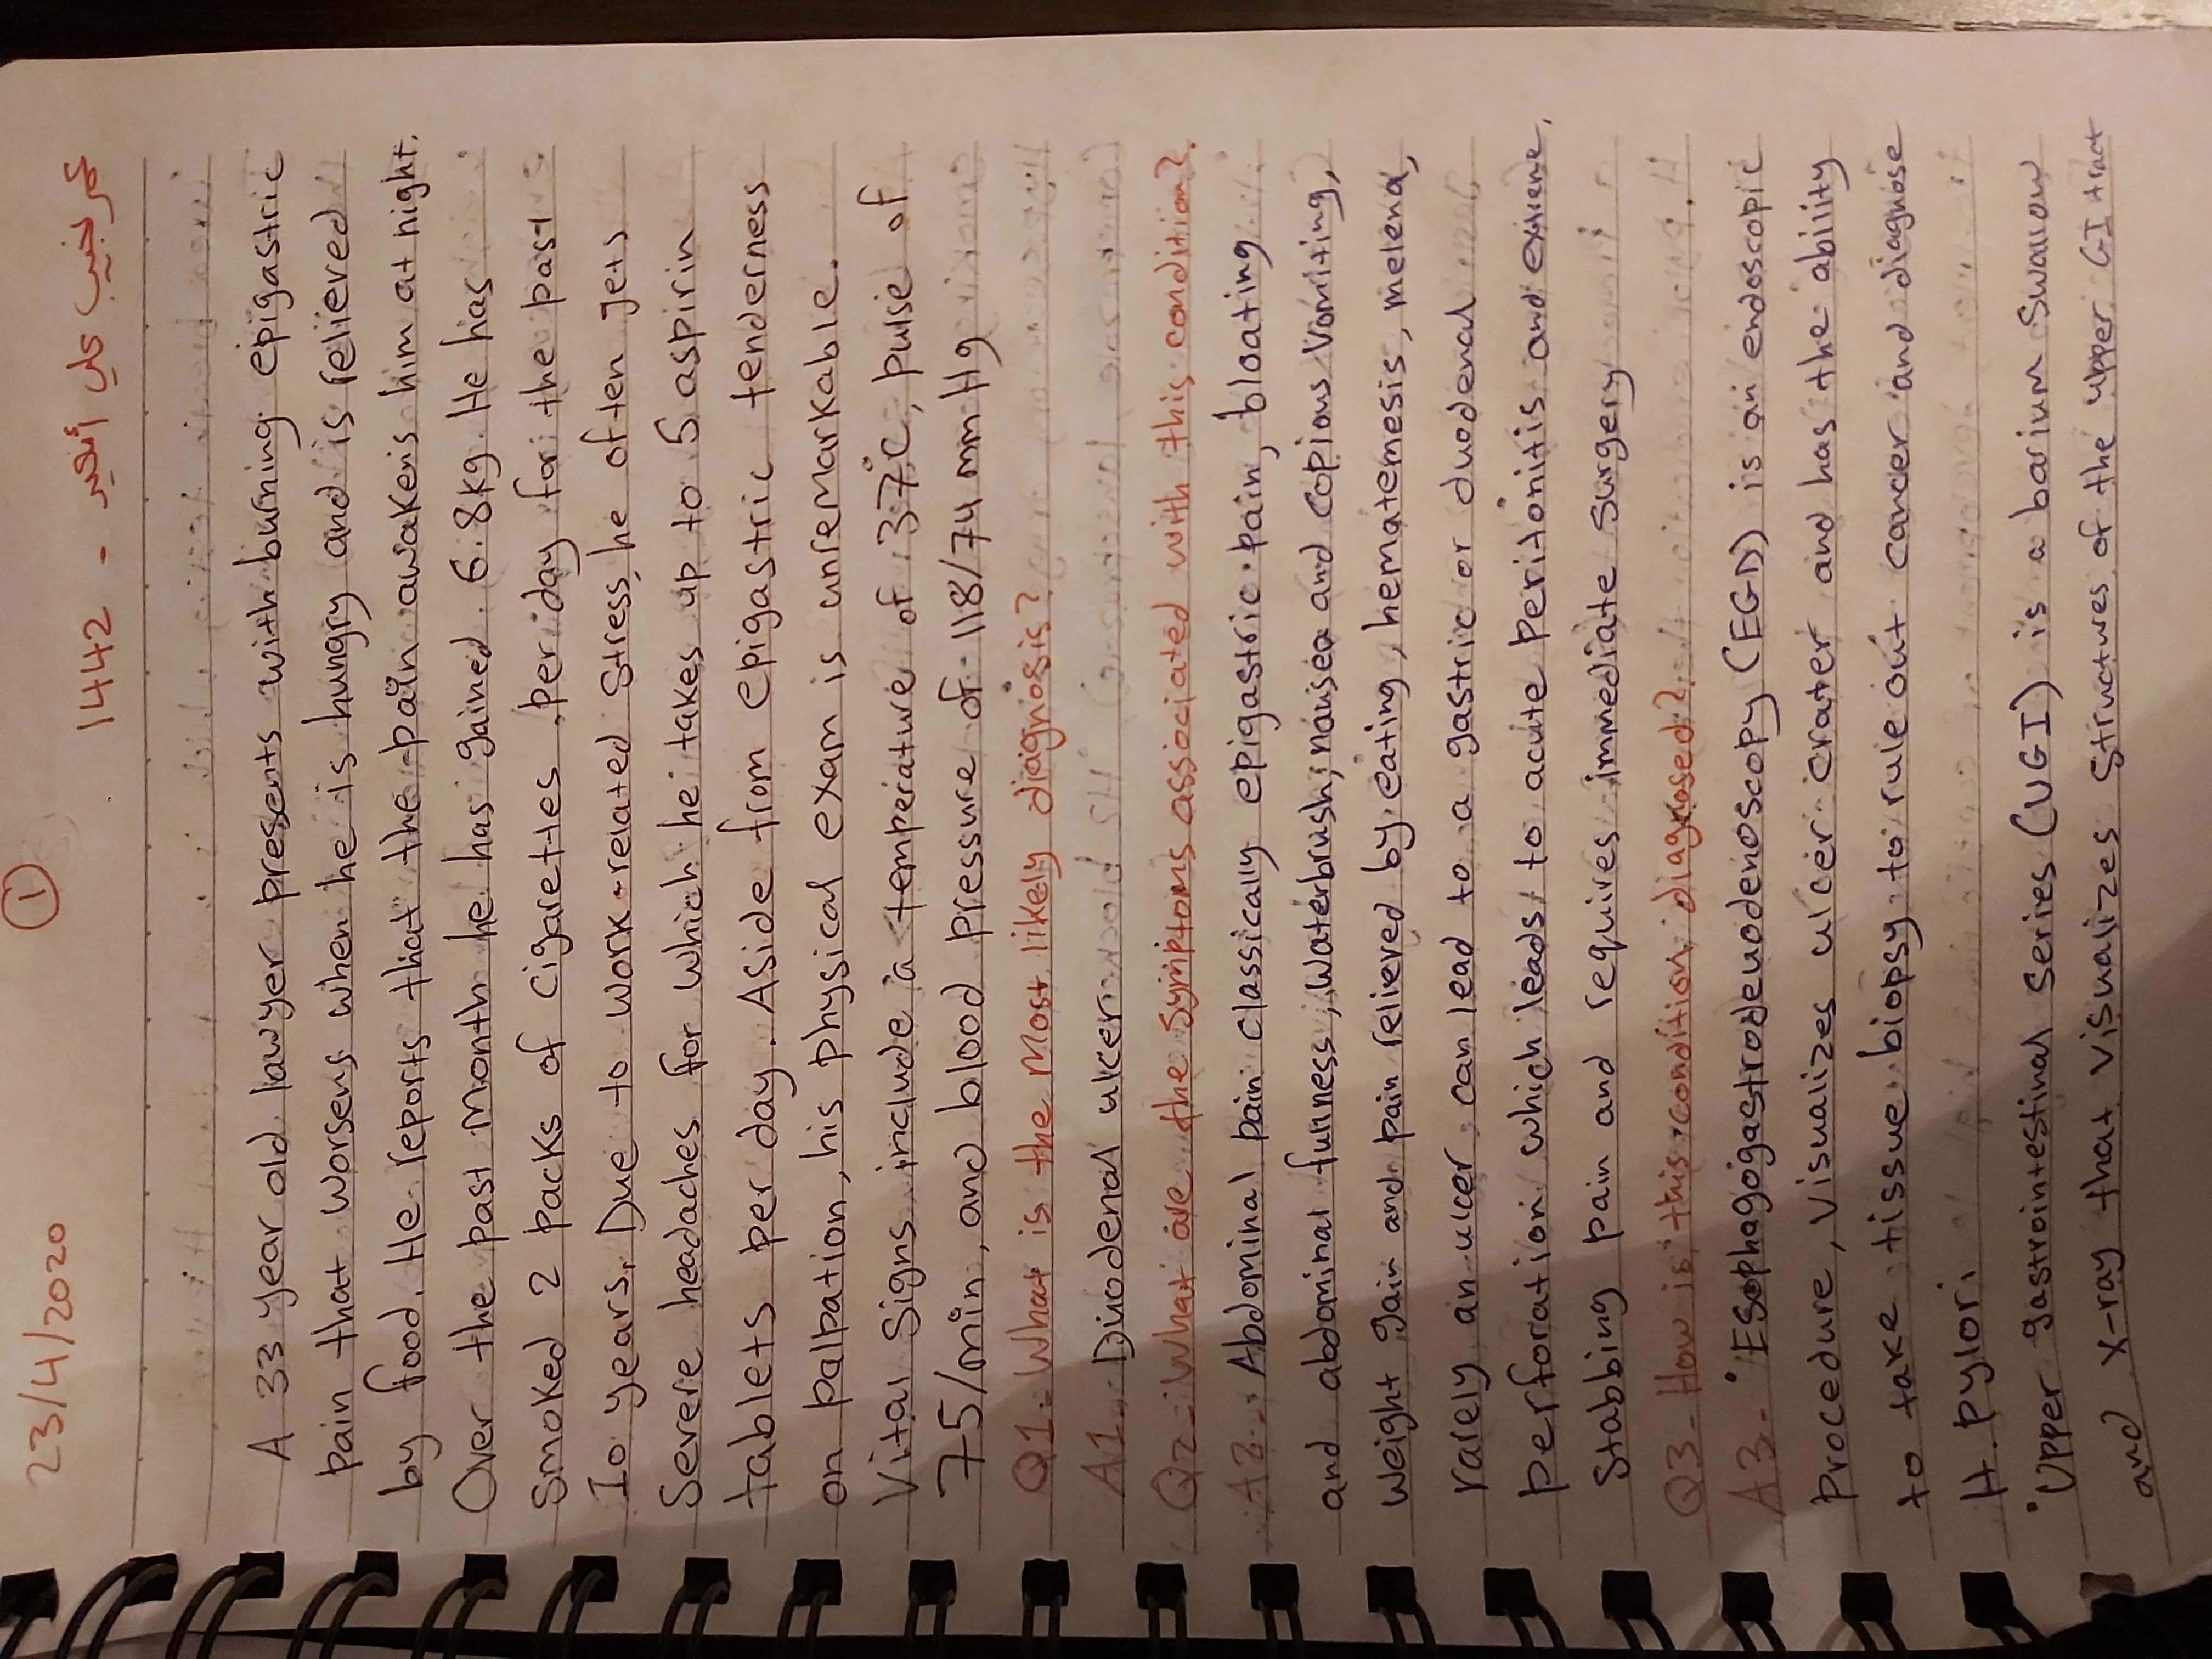 23/4/2020
①
1442 -
A 33 year old lawyer presents with burning epigastric
pain that worsens when he is hungry and is relieved
by food. He reports that the pain awakens him at night.
Over the past month he has gained 6.8kg. He has
Smoked 2 packs of cigarettes per day for the past
10 years. Due to work-related stress, he often gets
Severe headaches for which he takes up to 5 aspirin
tablets per day. Aside from epigastric tenderness
on palpation, his physical exam is unremarkable.
Vital Signs include a temperature of 37°C, pulse of
75/min, and blood pressure of 118/74 mmHg
Q1- What is the Most likely diagnosis?
A1- Duodenal ulcer
Q2- What are the Symptoms associated with this condition?
A2- Abdominal pain classically epigastric pain, bloating
and abdominal fullness, waterbrush, nausea and copious vomiting,
weight gain and pain relieved by eating, hematemesis, melena,
rarely an ulcer can lead to a gastric or duodenal
perforation which leads to acute Peritonitis and extreme,
Stabbing pain and requires immediate Surgery
Q3- How is this condition diagnosed?
A3- •Esophagogastrodeuodenoscopy (EGD) is an endoscopic
Procedure, Visualizes ulcer crater and has the ability
to take tissue biopsy to rule out cancer and diagnose
H. pylori
•Upper gastrointestinal Series (UGI) is a barium Swallow
and X-ray that visualizes Structures of the upper GI tract